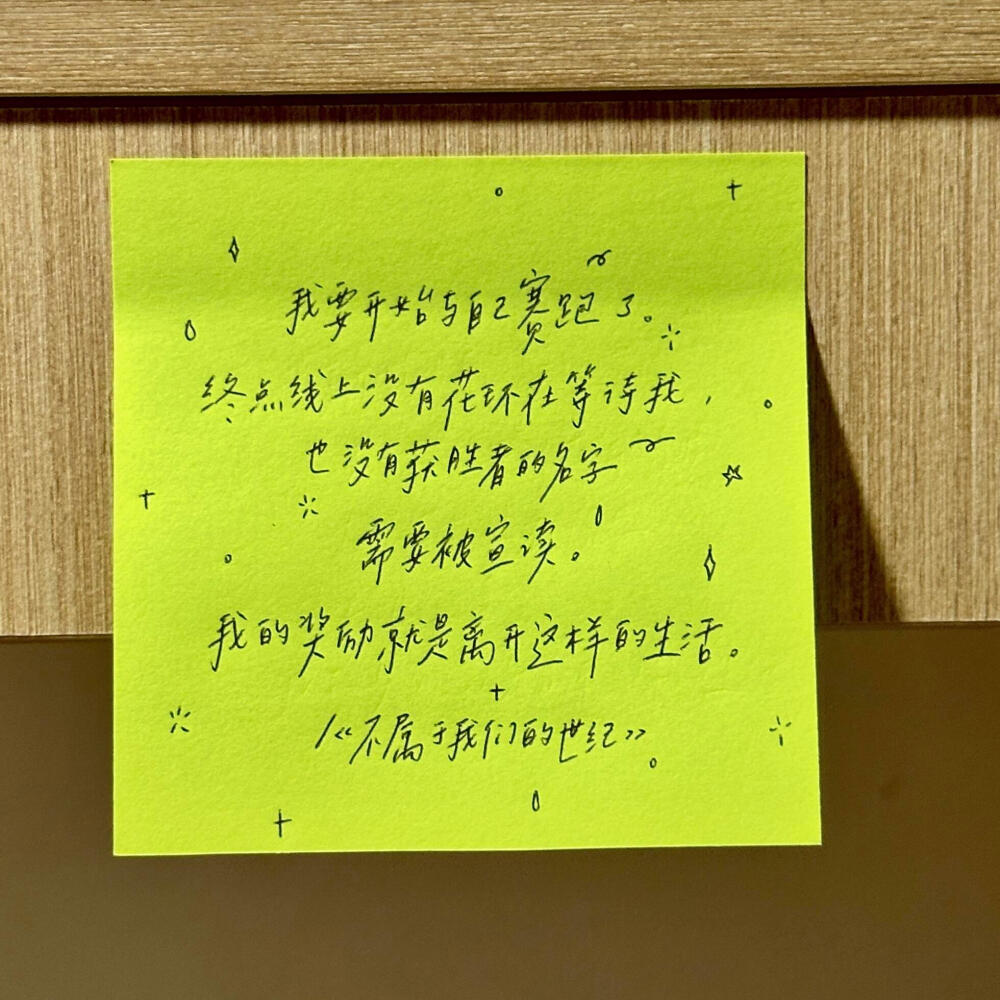 我要开始与自己赛跑了。
终点线上没有花环在等待我，
也没有获胜者的名字
需要被宣读。
我的奖励就是离开这样的生活。
/《不属于我们的世纪》